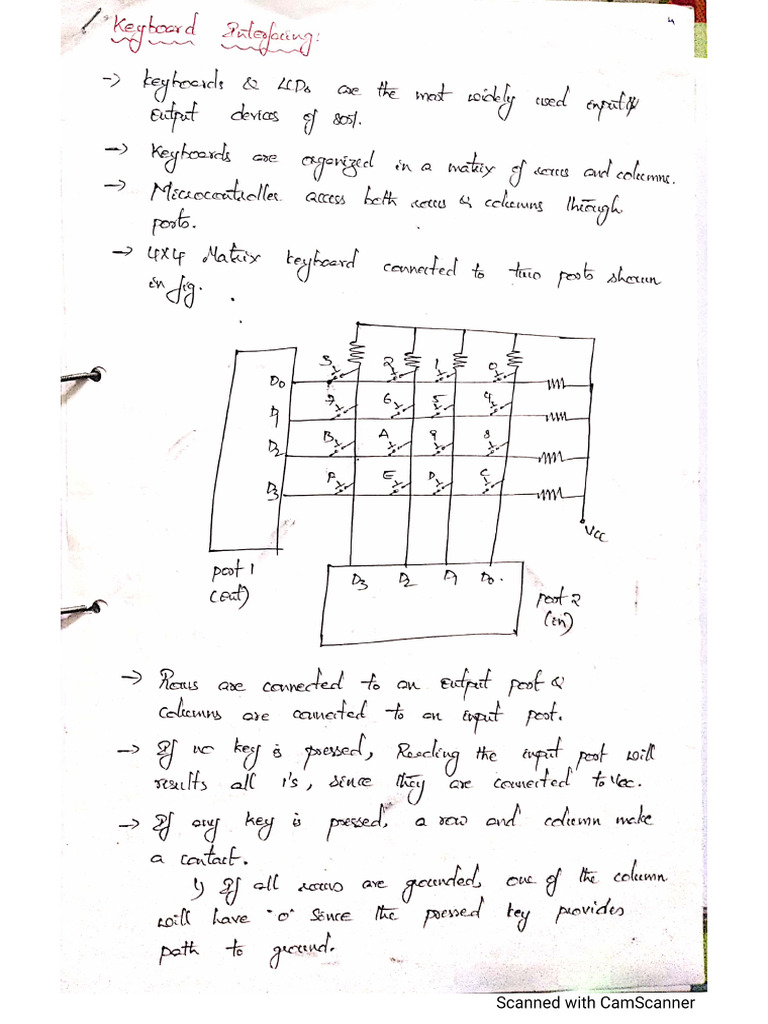 4
Keyboard Interfacing:
→ Keyboards & LCDs are the most widely used input &
output devices of 8051.
→ Keyboards are organized in a matrix of rows and columns.
→ Microcontroller access both rows & columns through
ports.
→ 4x4 Matrix keyboard connected to two ports shown
in fig.
3 2 1 0
D0
7 6 5 4
D1
B A 9 8
D2
F E D C
D3
Vcc
Port 1
(out)
D3 D2 D1 D0.
Port 2
(in)
→ Rows are connected to an output port &
columns are connected to an input port.
→ If no key is pressed, Reading the input port will
results all 1's, since they are connected to Vcc.
→ If any key is pressed, a row and column make
a contact.
1) If all rows are grounded, one of the column
will have "0" since the pressed key provides
path to ground.
Scanned with CamScanner